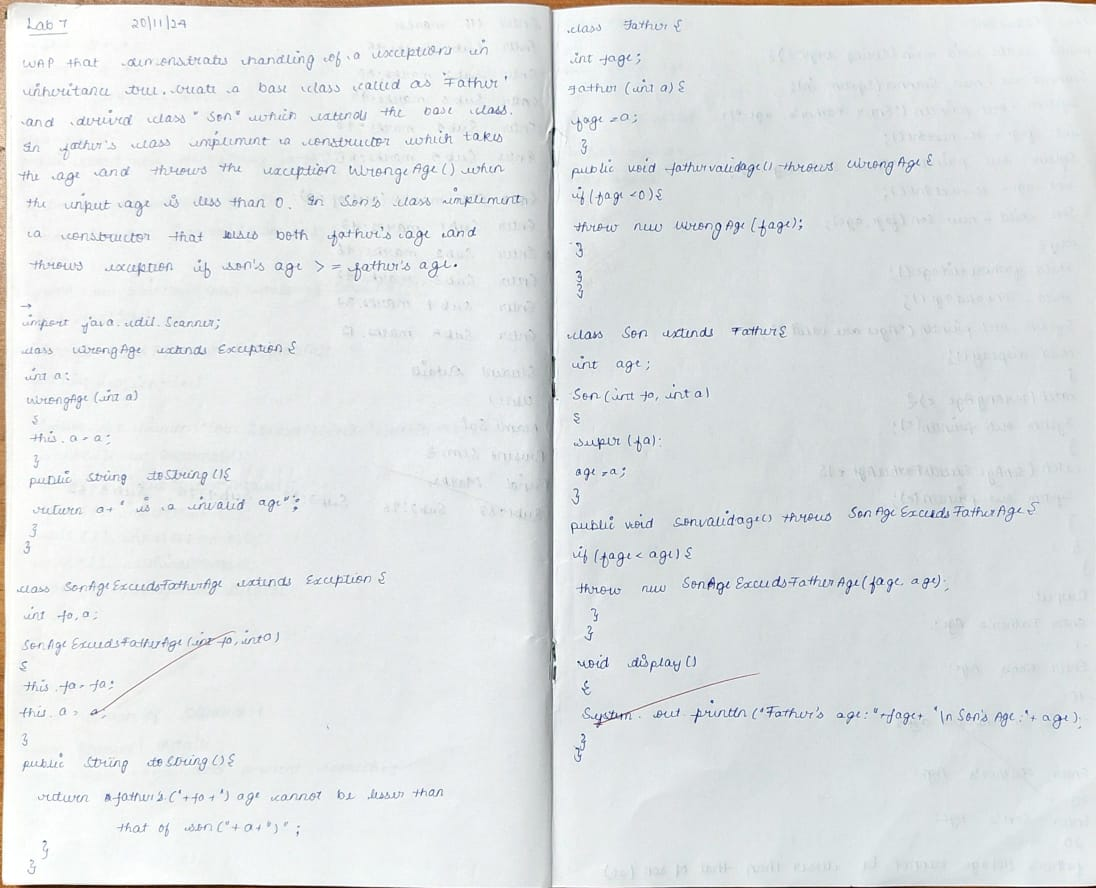 Lab 7 20/11/24
WAP that demonstrates handling of a exceptions in
inheritance tree. Create a base class called as "Father"
and derived class "Son" which extends the base class.
In father's class impliment a constructor which takes
the age and throws the exception WrongeAge() when
the input age is less than 0. In Son's class implement
a constructor that uses both father's age and
throws exception if son's age >= father's age.
→
import java.util.Scanner;
class WrongAge extends Exception {
int a;
WrongAge (int a)
{
this.a = a;
}
public String toString(){
return a+" is a invalid age";
}
}
class SonAgeExceedsFatherAge extends Exception {
int fa, a;
SonAgeExceedsFatherAge (int fa, int a)
{
this.fa = fa;
this.a = a;
}
public String toString(){
return "father's ("+fa+") age cannot be lesser than
that of son ("+a+")";
}
}
class Father {
int fage;
Father (int a) {
fage = a;
}
public void fathervalidage() throws WrongAge {
if (fage <0) {
throw new WrongAge (fage);
}
}
}
class Son extends Father {
int age;
Son (int fa, int a)
{
super (fa);
age = a;
}
public void sonvalidage() throws SonAgeExceedsFatherAge {
if (fage < age) {
throw new SonAgeExceedsFatherAge (fage, age);
}
}
void display ()
{
System. out println ("Father's age: "+fage+ "\n Son's Age: "+ age);
}
}